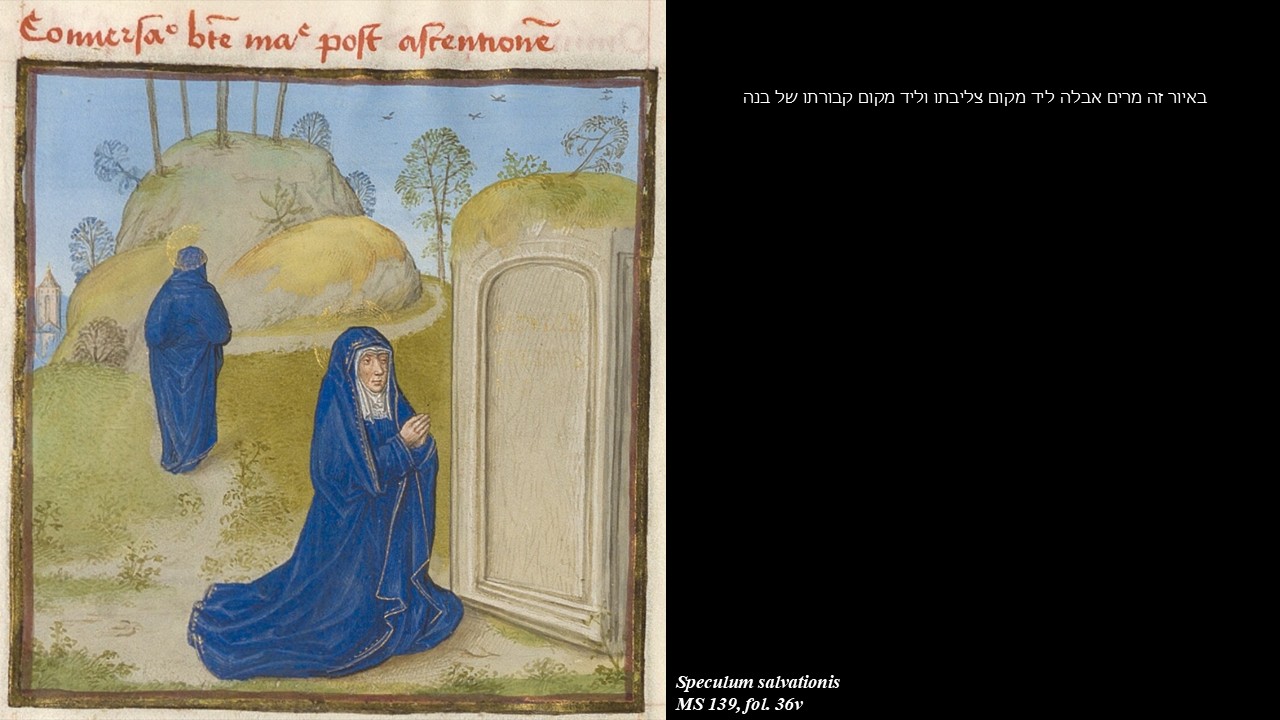 Conuersa° bt̃e ma͛ post ascentionẽ
באיור זה מרים אבלה ליד מקום צליבתו וליד מקום קבורתו של בנה
Speculum salvationis
MS 139, fol. 36v